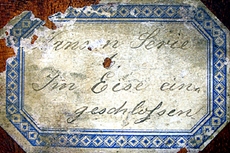 Serie
Im Eise ein-
geschlossen